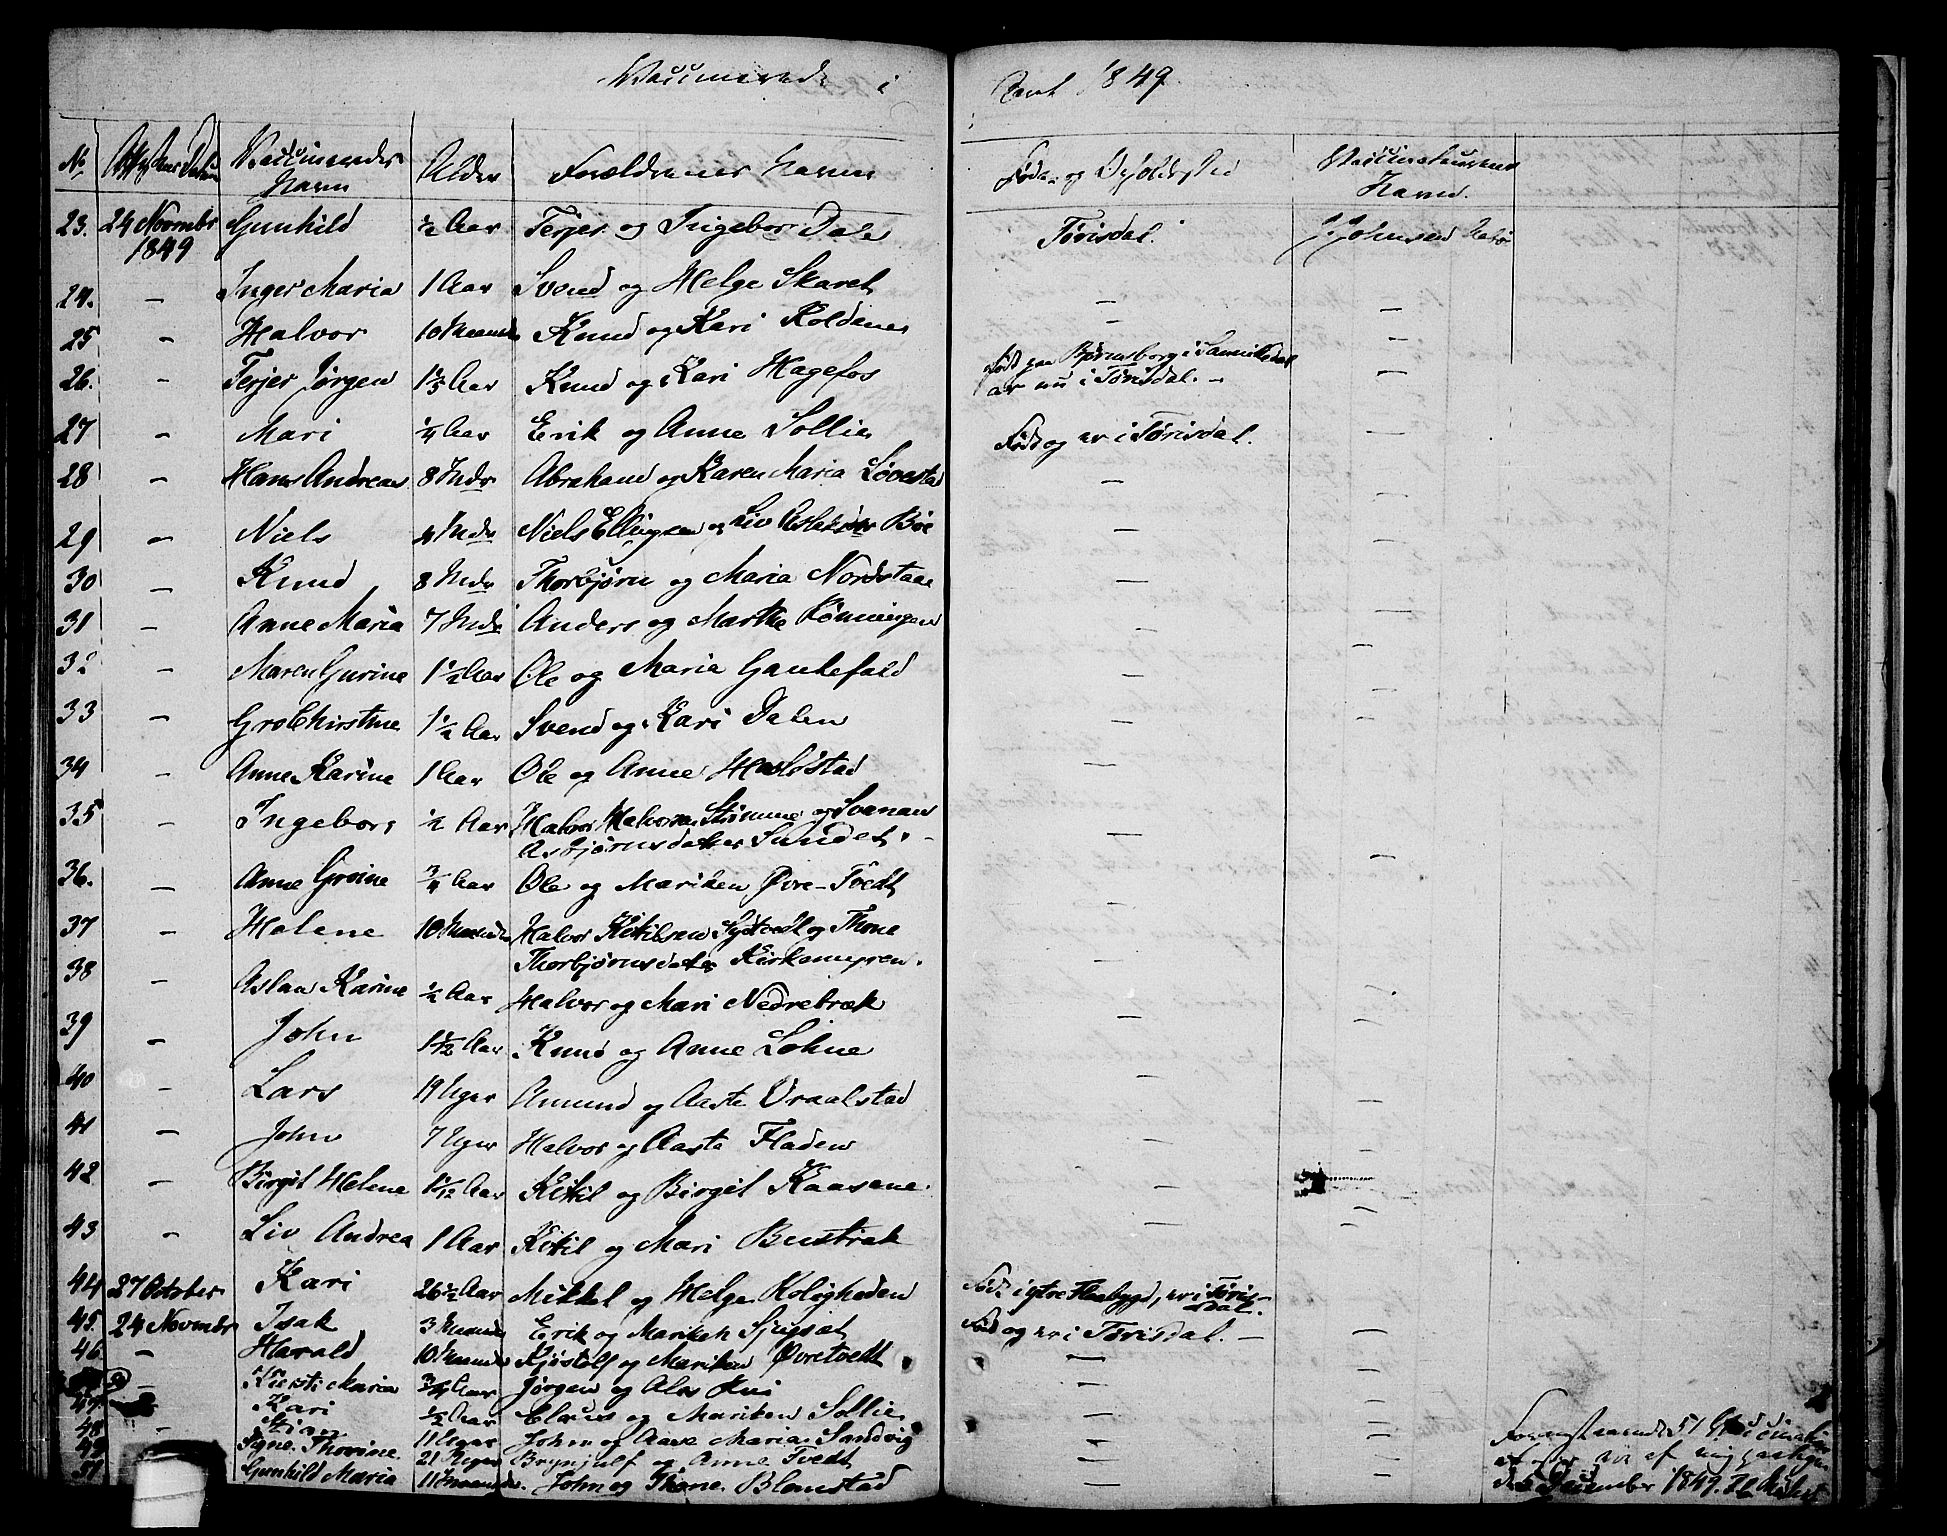 Vaccinerede i Aaret 1849.
No Vaccineredes Navn Alder Forældrenes Navn Føde- og Opholdsted Vaccinateurens Navn.
23. 24 Novembr 1849 Gunhild ½ Aar Terjer og Ingebor Dale Tørisdal. J. Johnsen
24. - Inger Maria 1 Aar Svend og Helge Skaret - -
25 - Halvor 10 Maaneder Knud og Kari Roldenes - -
26. - Terjer Jørgen Aar Knud og Kari Hagefos Født paa Bjørnsborg i Sannikedal
er nu i Tørisdal. - -
27 - Mari ¼ Aar Erik og Anne Sollie Født og er i Tørisdal. -
28 - Hans Andreas 8 Mdr Abraham og Karen Maria Lovestad - -
29 - Niels 4 Mdr Niels Ellingsen og Liv Bøe - -
30 - Knud 8 Mdr Thorbjørn og Maria Nordstaae - -
31 - Anne Maria 7 Mdr Anders og Marthe Rønningen - -
32 - Maren Gurine 1½ Aar Ole og Maria Gautefald - -
33 - Gro Chirstine 1½ Aar Svend og Kari Dalen - -
34 - Anne Karine 1 Aar Ole og Anne - -
35 - Ingeborg ½ Aar Halvor Halvorsen Strømme og Svanau
Asbjørnsdatter Sundet. - - -
36. - Anne Groine ¾ Aar Ole og Mariken Øvre-Tvedt - -
37 - Helene 10 Maaneder Halvor Kittilsen Sydtvedt og Thone
Thorbjørnsdatter Kirkemyren. - -
38 - Aslau Karine ½ Aar Halvor og Mari Nedrebræk - -
39 - John 1½ Aar Knud og Anne Lohne - -
40 - Lars 19 Uger Amund og Aaste Vraalstad - -
41 - John 7 Uger Halvor og Aaste Fladen - -
42 - Birgit Helene Aar Kittil og Birgit Kaasene. - -
43 - Liv Andrea 1 Aar Kittil og Mari Bustrak - -
44 27 October Kari 26½ Aar Mikkel og Helge Roligheden Født i ytre Flaabygd, er i Tøris-
dal. -
45. 24 Novembr Isak 3 Maaneder Erik og Mariken Født og er i Tørisdal. - -
46 - Harald 10 Maaneder Kjøstolf og Mariken Øvretvedt - -
Kirsti Maria ¾ Aar Jørgen og - -
Kari ½ Aar Claus og Mariken Sollie - -
48 - 11 Uger John og Anne Maria Sandvig - -
49 Signe Thorine 21 Uger Brynjulf og Anne Tvedt - -
51 Gunhild Maria 11 Maaneder. John og Thone Blomstad - -
Foranstaaende 51
er af mig
den December 1849.